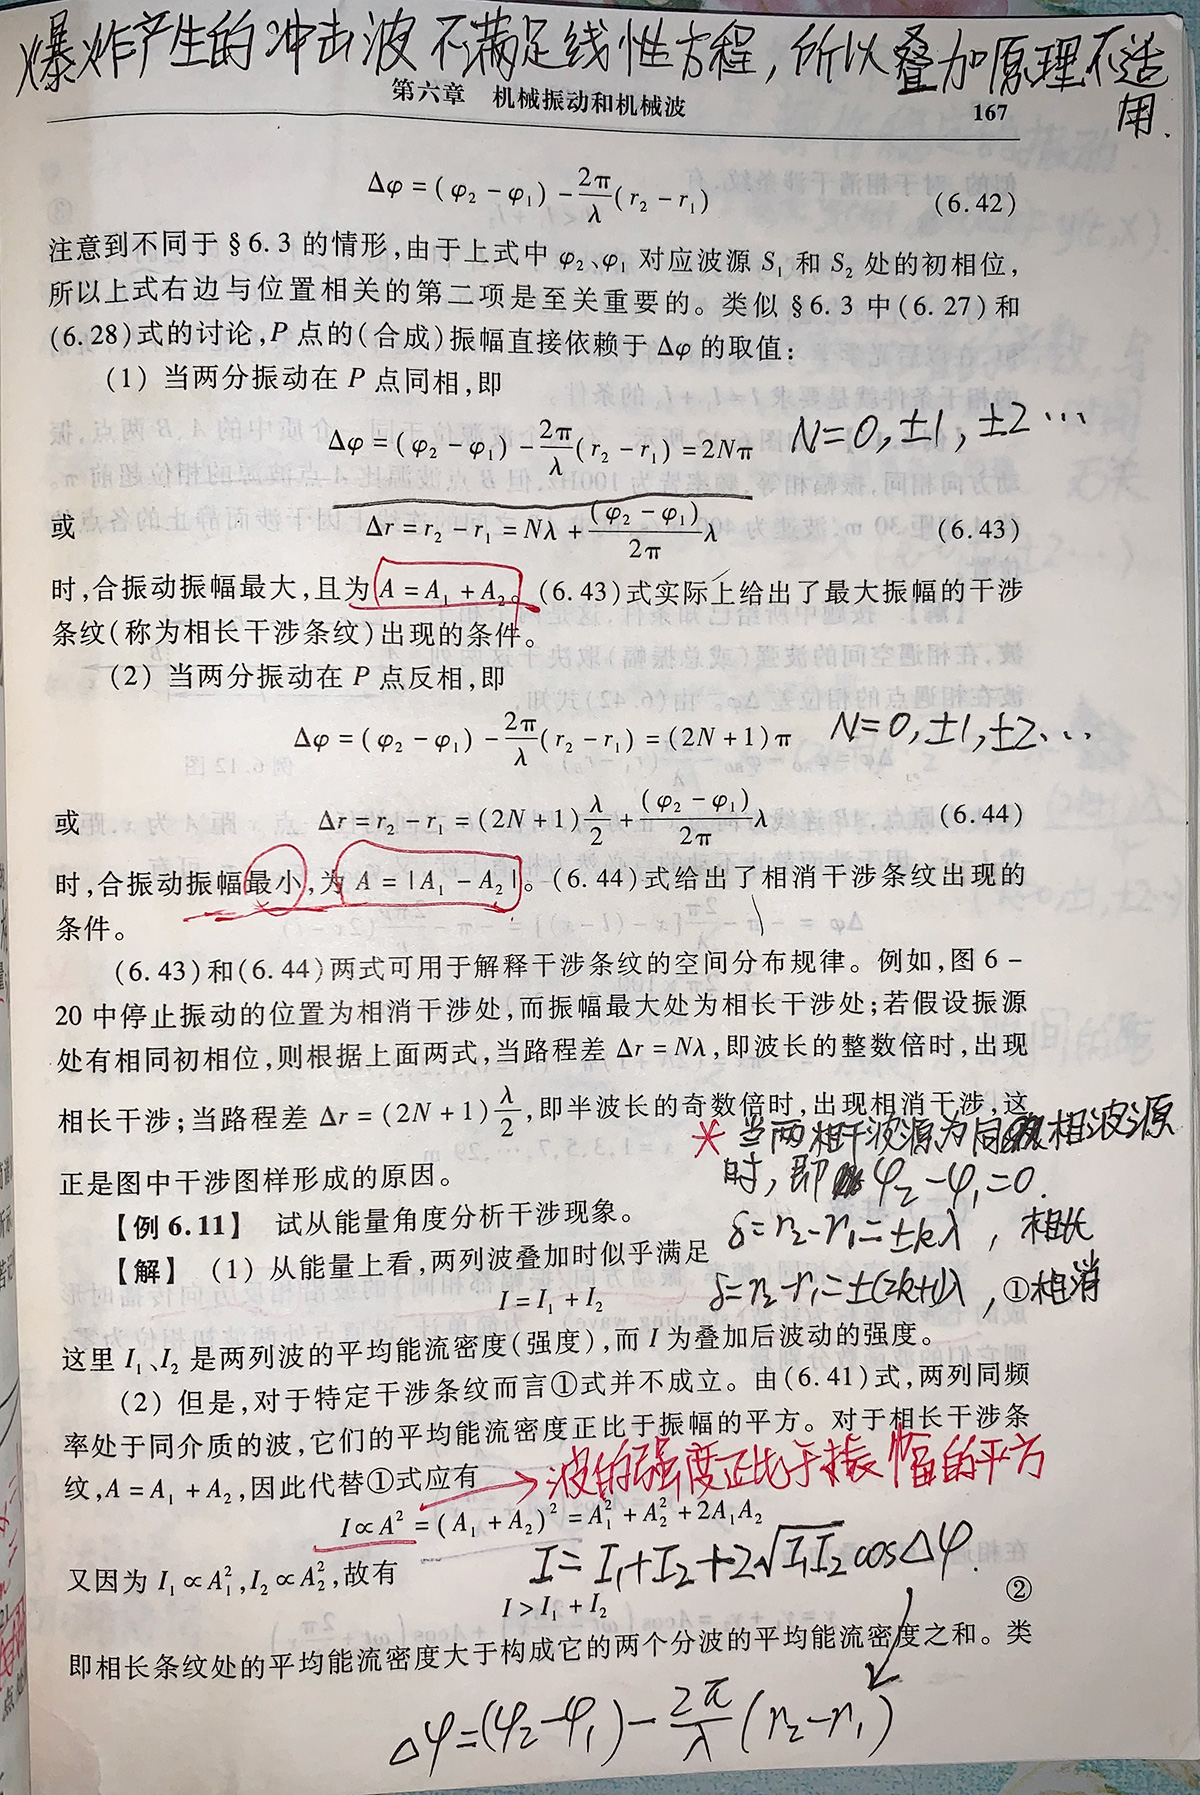 爆炸产生的冲击波不满足线性方程，所以叠加原理不适
用.
第六章 机械振动和机械波 167
Δφ = (φ₂ − φ₁) − 2π/λ (r₂ − r₁) (6.42)
注意到不同于§6.3的情形,由于上式中φ₂、φ₁对应波源S₁和S₂处的初相位,
所以上式右边与位置相关的第二项是至关重要的。类似§6.3中(6.27)和
(6.28)式的讨论,P点的(合成)振幅直接依赖于Δφ的取值:
(1) 当两分振动在P点同相,即
Δφ = (φ₂ − φ₁) − 2π/λ (r₂ − r₁) = 2Nπ N=0,±1,±2…
或 Δr = r₂ − r₁ = Nλ + (φ₂ − φ₁)/2π λ (6.43)
时,合振动振幅最大,且为A = A₁ + A₂。(6.43)式实际上给出了最大振幅的干涉
条纹(称为相长干涉条纹)出现的条件。
(2) 当两分振动在P点反相,即
Δφ = (φ₂ − φ₁) − 2π/λ (r₂ − r₁) = (2N + 1)π N=0,±1,±2…
或 Δr = r₂ − r₁ = (2N + 1) λ/2 + (φ₂ − φ₁)/2π λ (6.44)
时,合振动振幅最小,为A = |A₁ − A₂|。(6.44)式给出了相消干涉条纹出现的
条件。
(6.43)和(6.44)两式可用于解释干涉条纹的空间分布规律。例如,图6-
20中停止振动的位置为相消干涉处,而振幅最大处为相长干涉处;若假设振源
处有相同初相位,则根据上面两式,当路程差Δr = Nλ,即波长的整数倍时,出现
相长干涉;当路程差Δr = (2N + 1) λ/2,即半波长的奇数倍时,出现相消干涉,这
* 当两相干波源为同相波源
正是图中干涉图样形成的原因。 时,即φ₂−φ₁=0.
【例6.11】 试从能量角度分析干涉现象。 δ=r₂−r₁=±kλ, 相长
【解】 (1) 从能量上看,两列波叠加时似乎满足
I = I₁ + I₂ ① δ=r₂−r₁=±(2k+1)λ, 相消
这里I₁、I₂是两列波的平均能流密度(强度),而I为叠加后波动的强度。
(2) 但是,对于特定干涉条纹而言①式并不成立。由(6.41)式,两列同频
率处于同介质的波,它们的平均能流密度正比于振幅的平方。对于相长干涉条
纹,A = A₁ + A₂,因此代替①式应有 →波的强度正比于振幅的平方
I ∝ A² = (A₁ + A₂)² = A₁² + A₂² + 2A₁A₂
I=I₁+I₂+2√I₁I₂ cosΔφ.
又因为I₁ ∝ A₁²,I₂ ∝ A₂²,故有
I > I₁ + I₂ ②
即相长条纹处的平均能流密度大于构成它的两个分波的平均能流密度之和。类
Δφ=(φ₂−φ₁)− 2π/λ (r₂−r₁)